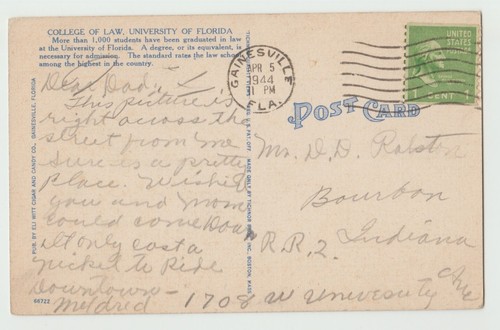 COLLEGE OF LAW, UNIVERSITY OF FLORIDA
More than 1,000 students have been graduated in law
at the University of Florida. A degree, or its equivalent, is
necessary for admission. The standard rates the law school
among the highest in the country.
Dear Dad;
This picture is
right across the
street from me
Sure is a pretty
place. Wish
you and Mom
could come Down
it only cost a
nickel to Ride
Downtown —
Mildred
PUB. BY ELI WITT CIGAR AND CANDY CO., GAINESVILLE, FLORIDA
66722
GAINESVILLE
APR 5
1944
1 PM
FLA.
UNITED
STATES
POSTAGE
1 CENT 1
POST CARD
MADE ONLY BY TICHNOR BROS. INC., BOSTON, MASS.
Mr. D. D. Ralston
Bourbon
R.R. 2. Indiana
1708 W University Ave